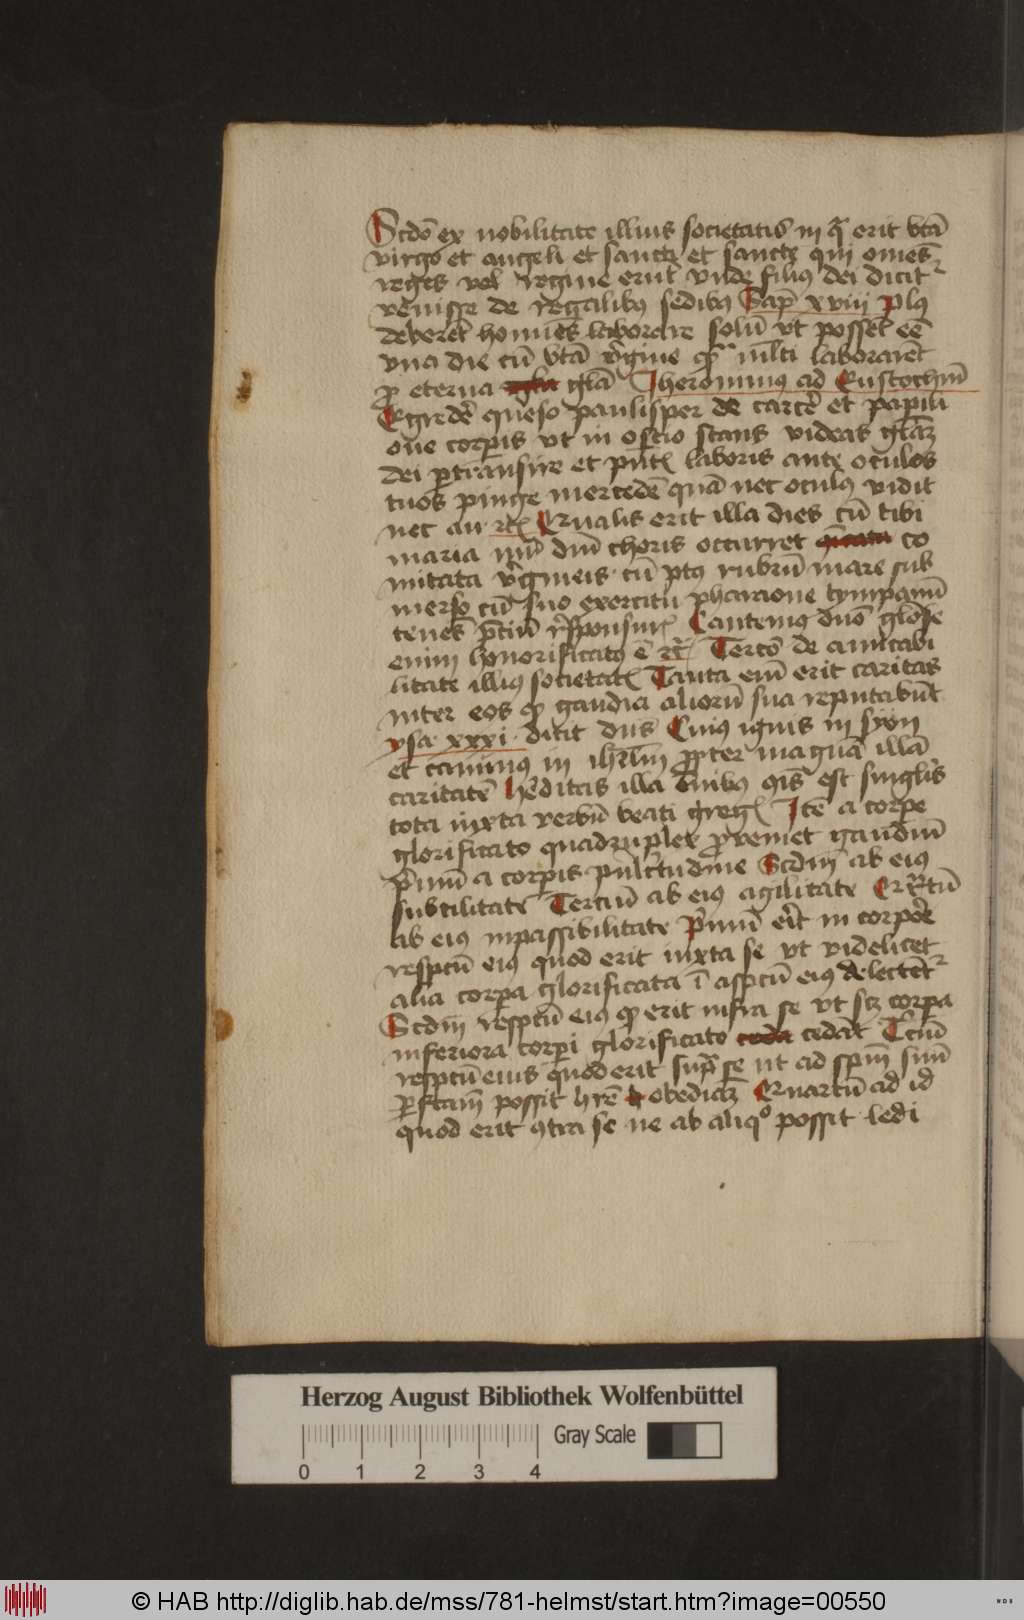 Scdo ex nobilitate illius societatis in qͣ erit btā
virgo et angeli et sancti et sancte qui omēs
reges vel regine erūt vnde filius dei dicit᷑
venisse de regalibus sedibus Sap̄ xviii plus
deberēt homines laborare solū vt possēt eē
vna die cū btā v̓gine qͣ mlti laborarēt
ꝓ eterna glā Iheronimus ad Eustochiū
Egredē queso paulisper de carcē et
one corpis vt in ostio stans videas glāz
dei ꝑtransire et laboris ante oculos
tuos pinge mercedē quā nec oculus vidit
nec au rc̄ Qualis erit illa dies cū tibi
maria mr̄ dni choris occurret co
mitata v̓gineis cū ptꝰ rubrū mare sub
merso cū suo exercitu pharaone tympanū
tenēs Cantemus dnō gloōse
enim honorificatus ē rc̄ Tercō de amicabi
litate illius societatꝭ Tanta eni erit caritas
inter eos qꝫ gaudia aliorū sua reputabūt
ysa xxxi dicit dns Cuius ignis in syon
et caminus in ihrlm ꝓpter magnā illā
caritatē h̓editas illa oīnibus ꝯīs est singl̓is
tota iuxta verbū beati gregꝭ Itē a corpe
glorificato quadruplex ꝓveniet gaudiū
p̓mū a corpis pulcritudine Scdm ab eius
subtilitate Terciū ab eius agilitate Qrtū
ab eius inpassibilitate P̓mū erit in corpore
respctū eius quod erit iuxta se vt videlicet
alia corpa glorificata ī aspctū eius delectēt᷑
Scdm respctū eius qꝫ erit infra se vt scꝫ corpa
inferiora corpi glorificato cedāt Tciū
respctū eius quod erit supͣ se ut ad spm̄ suū
ꝑfctam possit hrē obediāz Quartū ad id
quod erit ꝯtra se ne ab aliqº possit ledi
Herzog August Bibliothek Wolfenbüttel
Gray Scale
0 1 2 3 4
© HAB http://diglib.hab.de/mss/781-helmst/start.htm?image=00550